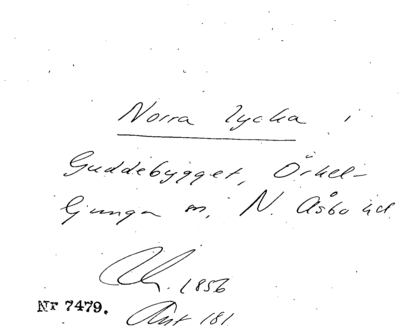 Norra lycka i
Guddebygget, Örkel-
ljunga sn, N. Åsbo hd
1856
Nr 7479.
Ant 181